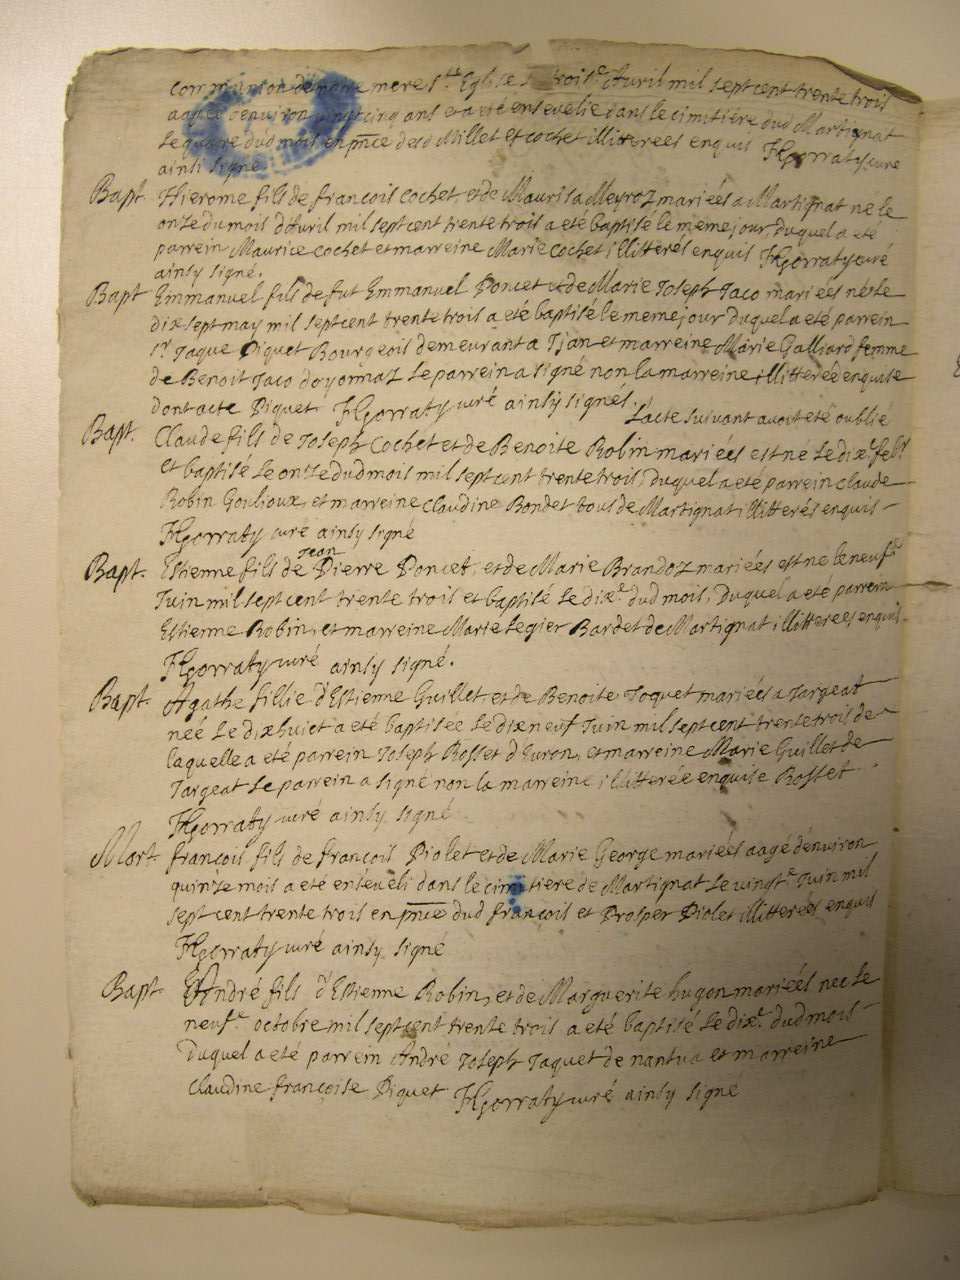 communion de notre mere S.te Eglise troise. Avril mil sept cent trente trois
aagée denviron vingt cinq ans et a eté ensevelie dans le cimitiere dud Martignat
le quatre dud mois en pnce de Millet et cochet illiterees enquis FGorraty cure
ainsi signé
Bapt. Hierome fils de francois cochet, et de Maurisa Meyroz mariées a Martignat ne le
onze du mois d'Avril mil sept cent trente trois a eté baptisé le meme jour, duquel a eté
parrein Maurice cochet et marreine Marie cochet illitterés enquis FGorraty curé
ainsy signé.
Bapt Emmanuel fils de fut Emmanuel Poncet et de Marie Joseph Jaco mariées né le
dix sept may mil sept cent trente trois a eté baptisé le meme jour duquel a eté parrein
sr. Jaque Piquet Bourgeois demeurant a Tjan et marreine Marie Galliard femme
de Benoit Jaco doyonnaz le parrein a signé non la marreine illitterée enquise
dont acte Piquet FGorraty curé ainsy signés. L'acte suivant avoit eté oublié
Bapt. Claude fils de Joseph Cochet et de Benoite Robin mariées est né le dixe. febr
et baptisé le onze dud mois mil sept cent trente trois, duquel a eté parrein claude
Robin Goulioux, et marreine claudine Bondet tous de Martignat illitterés enquis
FGorraty curé ainsy signé
Jean
Bapt. Estienne fils de Pierre Poncet, et de Marie Brandoz mariées est né le neufe.
Juin mil sept cent trente trois et baptisé le dixe. dud mois, Duquel a eté parrein
Estienne Robin, et marreine Marie legier Bardet de Martignat illitterees enquis.
FGorraty curé ainsy signé.
Bapt. Agathe fillie d'Estienne Guillet, et de Benoite Joquet mariées a Jargeat
née le dixhuict a eté baptisée le dixneuf Juin mil sept cent trente trois de
laquelle a eté parrein Joseph Rosset d'Euron, et marreine Marie Guillet de
Jargeat le parrein a signé non la marreine illitterée enquise Rosset
FGorraty curé ainsy signé
Mort. francois fils de francois Piolet et de Marie George mariées aagé d'environ
quinze mois a eté enseveli dans le cimitiere de Martignat le vingte. Juin mil
sept cent trente trois en pnce dud francois et Prosper Piolet illitterées enquis
FGorraty curé ainsy signé
Bapt. André fils d'Estienne Robin, et de Marguerite hugon mariées nee le
neufe. octobre mil sept cent trente trois a eté baptisé le dixe. dud mois
Duquel a eté parrein André Joseph Jaquet de nantua et marreine
Claudine francoise Piquet FGorraty curé ainsy signé